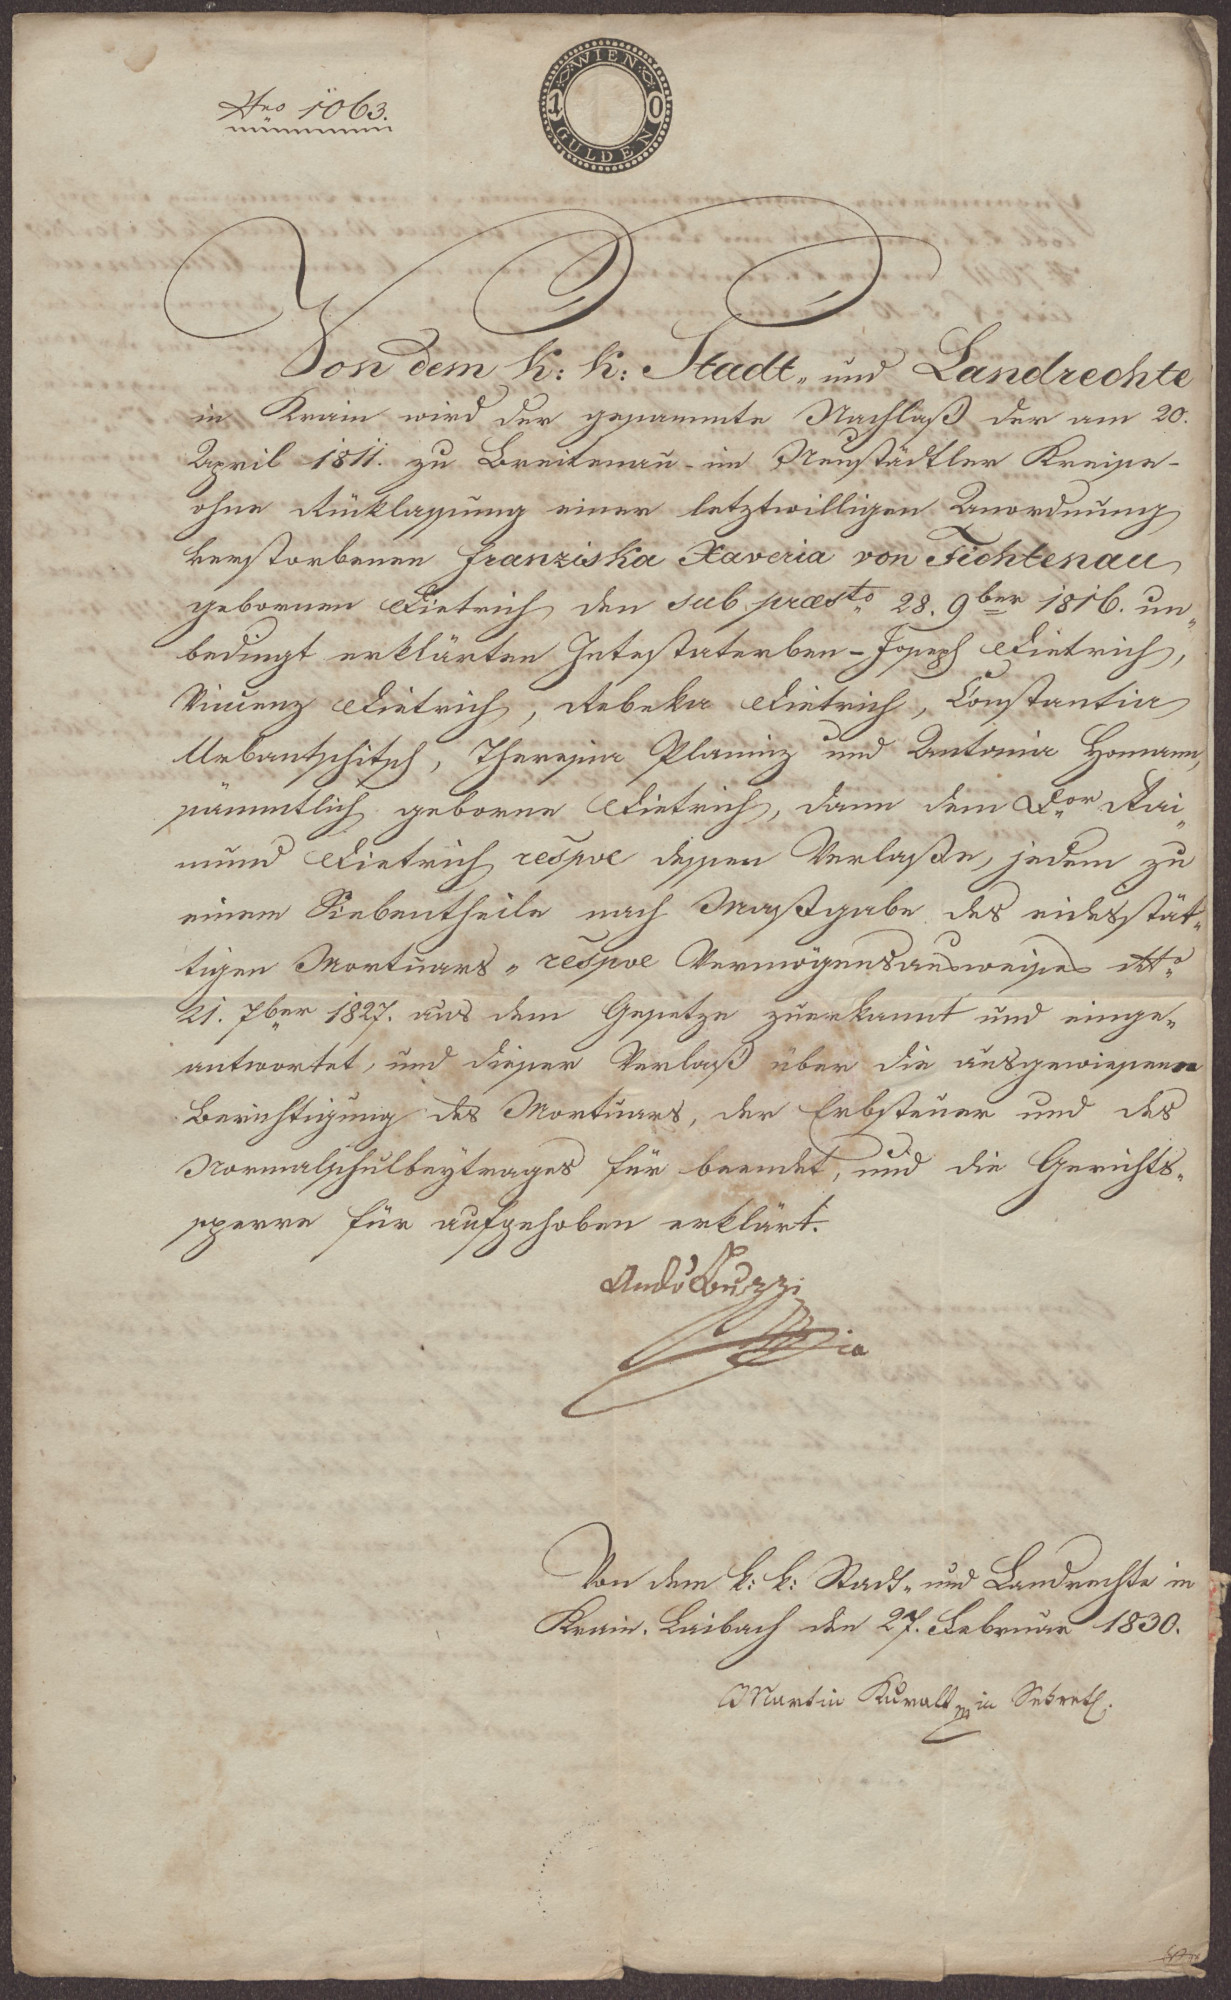 Nro 1063.
WIEN
10
GULDEN
Von dem k: k: Stadt- und Landrechte
in Krain wird der gesammte Nachlaß der am 20.
April 1811. zu Breitenau - im Neustädtler Kreise -
ohne Rücklassung einer letztwilligen Anordnung
verstorbenen Franziska Xaveria von Fichtenau
gebornen Dietrich, den sub præsto 28. 9ber 1816. un„
bedingt erklärten Intestaterben - Joseph Dietrich,
Vincenz Dietrich, Rebeka Dietrich, Constantia
Urbantschitsch, Theresia Planinz und Antonia Homann,
sämmtlich geborne Dietrich, dann dem Dor Rai„
mund Dietrich respve dessen Verlaße, jedem zu
einem Siebentheile nach Maßgabe des eidesstät„
tigen Mortuars- respve Vermögensausweises ddto
21. 7ber 1827. aus dem Gesetze zuerkannt und einge„
antwortet, und dieser Verlaß über die ausgewiesene
Berichtigung des Mortuars, der Erbsteuer und des
Normalschulbeytrages für beendet, und die Gerichts„
sperre für aufgehoben erklärt.
Buzzi
Von dem k: k: Stadt- und Landrechte in
Krain. Laibach den 27. Februar 1830.
Martin Kuralt